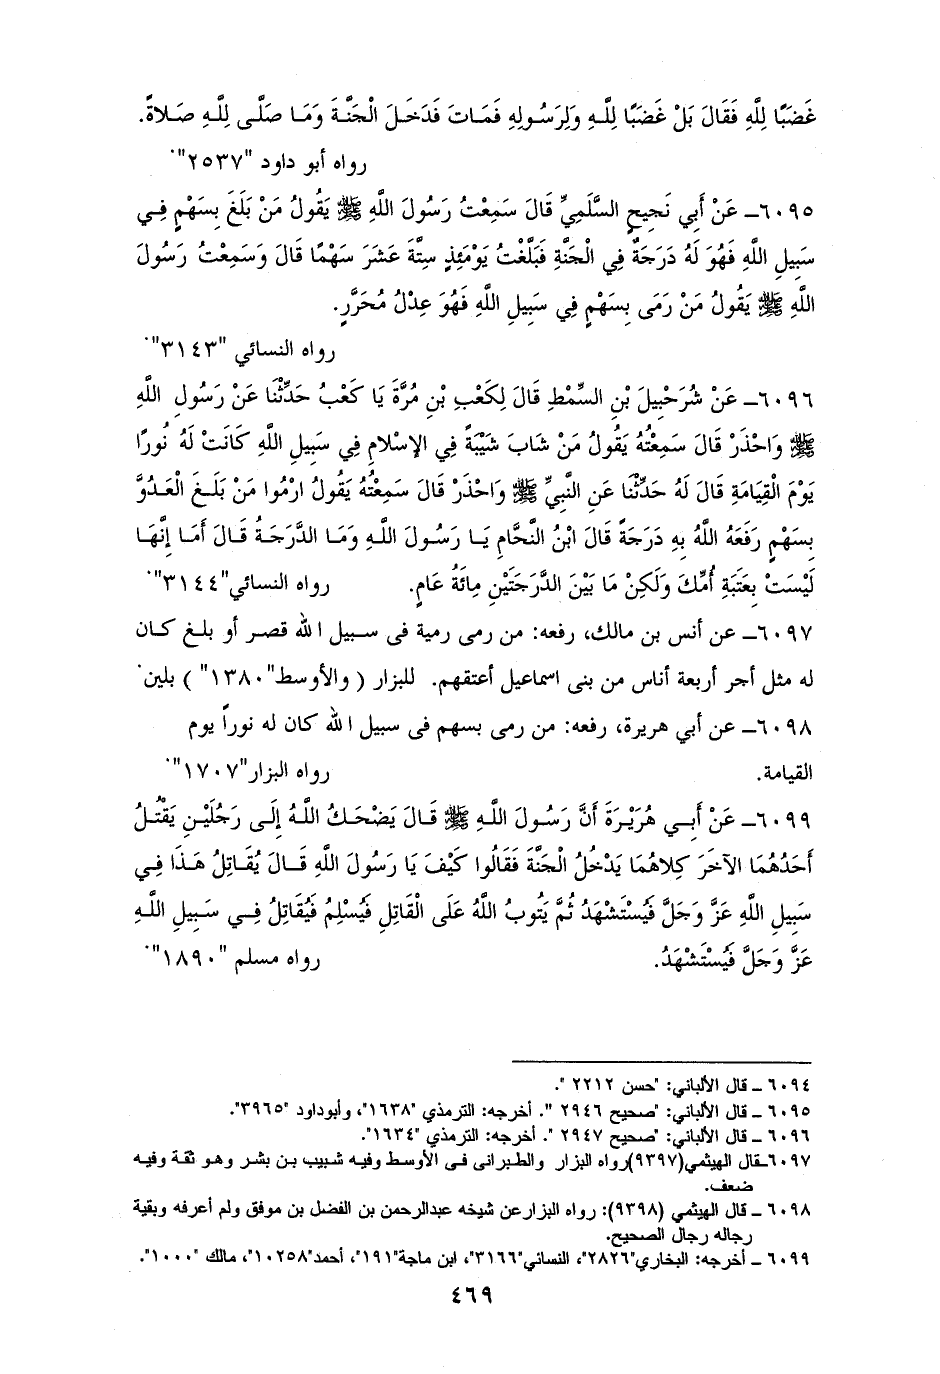 غَضَبًا لِلَّهِ فَقَالَ بَلْ غَضَبًا لِلَّهِ وَلِرَسُولِهِ فَمَاتَ فَدَخَلَ الْجَنَّةَ وَمَا صَلَّى لِلَّهِ صَلاةً.
رواه أبو داود "٢٥٣٧".
٦٠٩٥ـ عَنْ أَبِي نَجِيحٍ السَّلَمِيِّ قَالَ سَمِعْتُ رَسُولَ اللَّهِ ﷺ يَقُولُ مَنْ بَلَغَ بِسَهْمٍ فِي
سَبِيلِ اللَّهِ فَهُوَ لَهُ دَرَجَةٌ فِي الْجَنَّةِ فَبَلَّغْتُ يَوْمَئِذٍ سِتَّةَ عَشَرَ سَهْمًا قَالَ وَسَمِعْتُ رَسُولَ
اللَّهِ ﷺ يَقُولُ مَنْ رَمَى بِسَهْمٍ فِي سَبِيلِ اللَّهِ فَهُوَ عِدْلُ مُحَرَّرٍ.
رواه النسائي "٣١٤٣".
٦٠٩٦ـ عَنْ شُرَحْبِيلَ بْنِ السِّمْطِ قَالَ لِكَعْبِ بْنِ مُرَّةَ يَا كَعْبُ حَدِّثْنَا عَنْ رَسُولِ اللَّهِ
ﷺ وَاحْذَرْ قَالَ سَمِعْتُهُ يَقُولُ مَنْ شَابَ شَيْبَةً فِي الإِسْلامِ فِي سَبِيلِ اللَّهِ كَانَتْ لَهُ نُورًا
يَوْمَ الْقِيَامَةِ قَالَ لَهُ حَدِّثْنَا عَنِ النَّبِيِّ ﷺ وَاحْذَرْ قَالَ سَمِعْتُهُ يَقُولُ ارْمُوا مَنْ بَلَغَ الْعَدُوَّ
بِسَهْمٍ رَفَعَهُ اللَّهُ بِهِ دَرَجَةً قَالَ ابْنُ النَّحَّامِ يَا رَسُولَ اللَّهِ وَمَا الدَّرَجَةُ قَالَ أَمَا إِنَّهَا
لَيْسَتْ بِعَتَبَةِ أُمِّكَ وَلَكِنْ مَا بَيْنَ الدَّرَجَتَيْنِ مِائَةُ عَامٍ. رواه النسائي"٣١٤٤".
٦٠٩٧ـ عن أنس بن مالك، رفعه: من رمى رمية فى سبيل الله قصر أو بلغ كان
له مثل أجر أربعة أناس من بنى اسماعيل أعتقهم. للبزار ( والأوسط"١٣٨٠" ) بلين.
٦٠٩٨ـ عن أبي هريرة، رفعه: من رمى بسهم فى سبيل الله كان له نوراً يوم
القيامة. رواه البزار"١٧٠٧".
٦٠٩٩ـ عَنْ أَبِي هُرَيْرَةَ أَنَّ رَسُولَ اللَّهِ ﷺ قَالَ يَضْحَكُ اللَّهُ إِلَى رَجُلَيْنِ يَقْتُلُ
أَحَدُهُمَا الآخَرَ كِلاهُمَا يَدْخُلُ الْجَنَّةَ فَقَالُوا كَيْفَ يَا رَسُولَ اللَّهِ قَالَ يُقَاتِلُ هَذَا فِي
سَبِيلِ اللَّهِ عَزَّ وَجَلَّ فَيُسْتَشْهَدُ ثُمَّ يَتُوبُ اللَّهُ عَلَى الْقَاتِلِ فَيُسْلِمُ فَيُقَاتِلُ فِي سَبِيلِ اللَّهِ
عَزَّ وَجَلَّ فَيُسْتَشْهَدُ. رواه مسلم "١٨٩٠".
٦٠٩٤ ـ قال الألباني: "حسن ٢٢١٢ ".
٦٠٩٥ ـ قال الألباني: "صحيح ٢٩٤٦ ". أخرجه: الترمذي "١٦٣٨"، وأبوداود "٣٩٦٥".
٦٠٩٦ ـ قال الألباني: "صحيح ٢٩٤٧ ". أخرجه: الترمذي "١٦٣٤".
٦٠٩٧ـقال الهيثمي(٩٣٩٧)رواه البزار والطبرانى فى الأوسط وفيه شبيب بن بشر وهو ثقة وفيه
ضعف.
٦٠٩٨ ـ قال الهيثمي (٩٣٩٨): رواه البزارعن شيخه عبدالرحمن بن الفضل بن موفق ولم أعرفه وبقية
رجاله رجال الصحيح.
٦٠٩٩ ـ أخرجه: البخاري"٢٨٢٦"، النسائي"٣١٦٦"، ابن ماجة"١٩١"، أحمد"١٠٢٥٨"، مالك "١٠٠٠".
٤٦٩